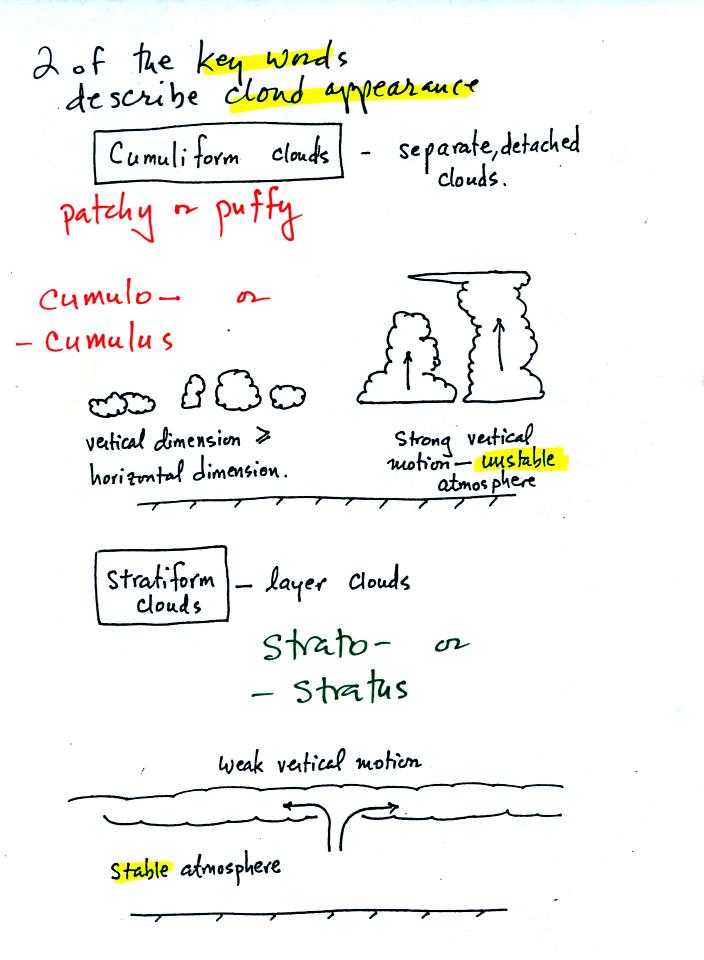 2 of the key words
describe cloud appearance
Cumuliform clouds - separate, detached
clouds.
patchy or puffy
cumulo- or
- cumulus
vertical dimension ≥
horizontal dimension.
Strong vertical
motion - unstable
atmosphere
Stratiform
clouds - layer clouds
Strato- or
- Stratus
weak vertical motion
Stable atmosphere